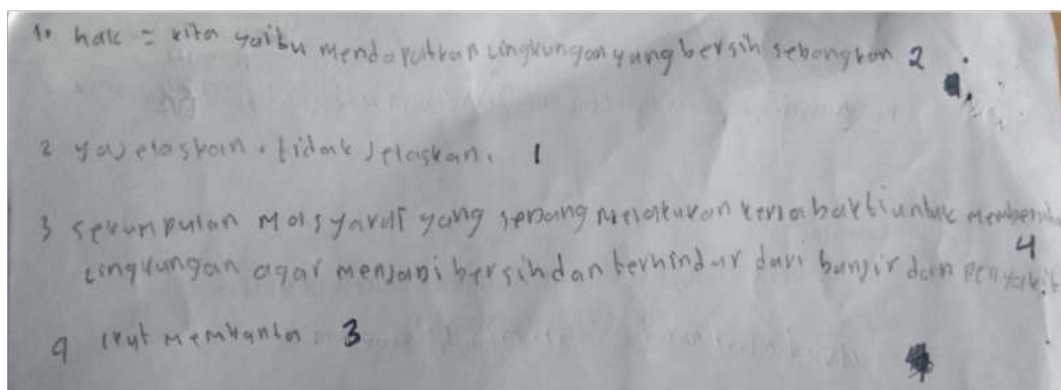 1. hak = kita yaitu mendapatkan lingkungan yang bersih sebangkan 2
2 ya jelaskan. tidak jelaskan. 1
3 sekumpulan masyarat yang sedang melakukan kerja bakti untuk membersi
lingkungan agar menjadi bersih dan terhindar dari banjir dan penyakit 4
4 ikut membantu 3